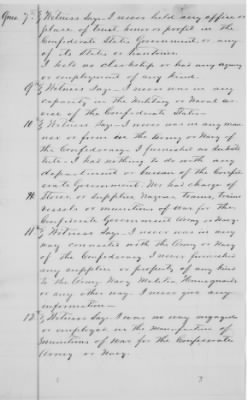 Ques 7th Witness Says I never held any office or
place of trust honor or profit in the
Confederate States Government or any
of its States or
I held no clerkship or had any agency
or employment of any kind.
9th Witness Says I never was in any
capacity in the Military or Naval ser
vice of the Confederate States
10th Witness Says I never was in any man
ner or form in the Army or Navy of
the Confederacy I furnished no substi
tute. I has nothing to do with any
department or bureau of the Confed
erate Government. Nor had charge of
Stores or Supplies Wagons Trains
vessels or munitions of war for the
Confederate Government Army or Navy.
11th Witness Says I never was in any
way connected with the Army or Navy
of the Confederacy I never furnished
any supplies or property of any kind
to the Army Navy Militia Homeguards
or any other way. I never give any
information
12th Witness Says I was no way engaged
or employed in the Manufacture of
Munitions of War for the Confederate
Army or Navy.